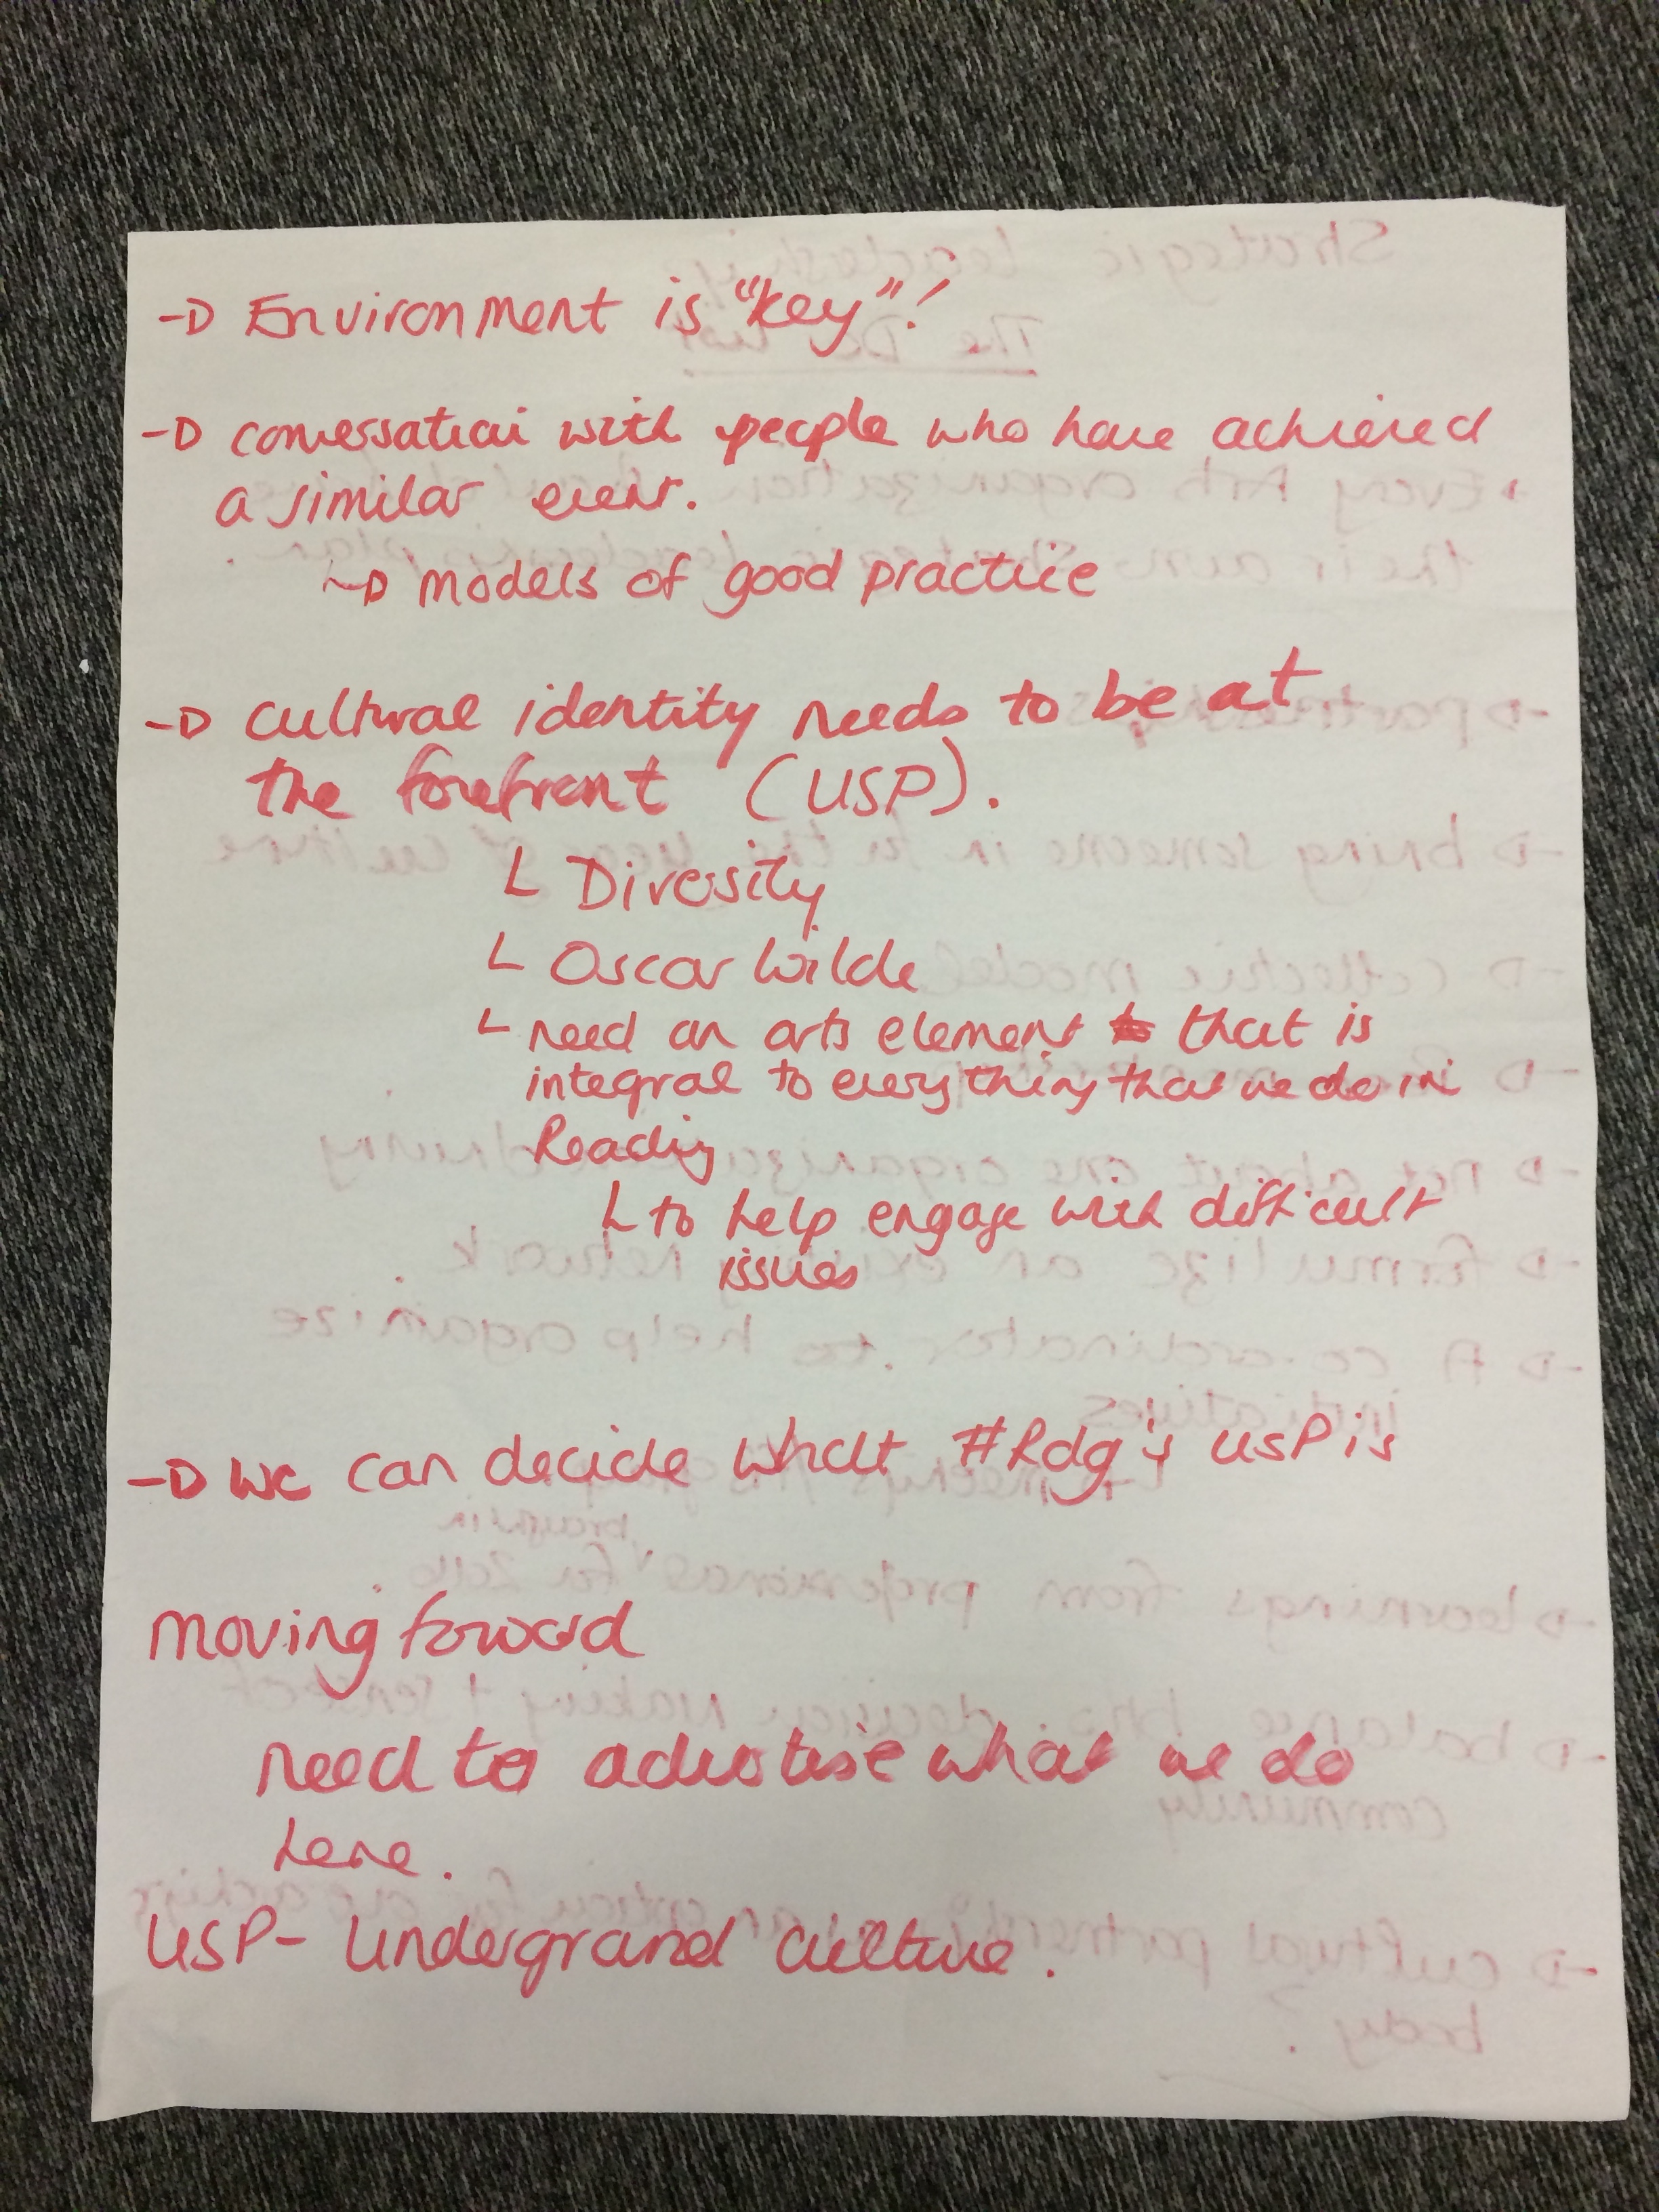 → Environment is "key"!
→ conversation with people who have achieved
a similar event.
↳ models of good practice
→ cultural identity needs to be at
the forefront (USP).
L Diversity
L Oscar Wilde
L need an arts element that is
integral to everything that we do in
Reading
L to help engage with difficult
issues
→ we can decide what #Rdg's USP is
moving forward
need to advertise what we do
here.
USP- Underground culture.